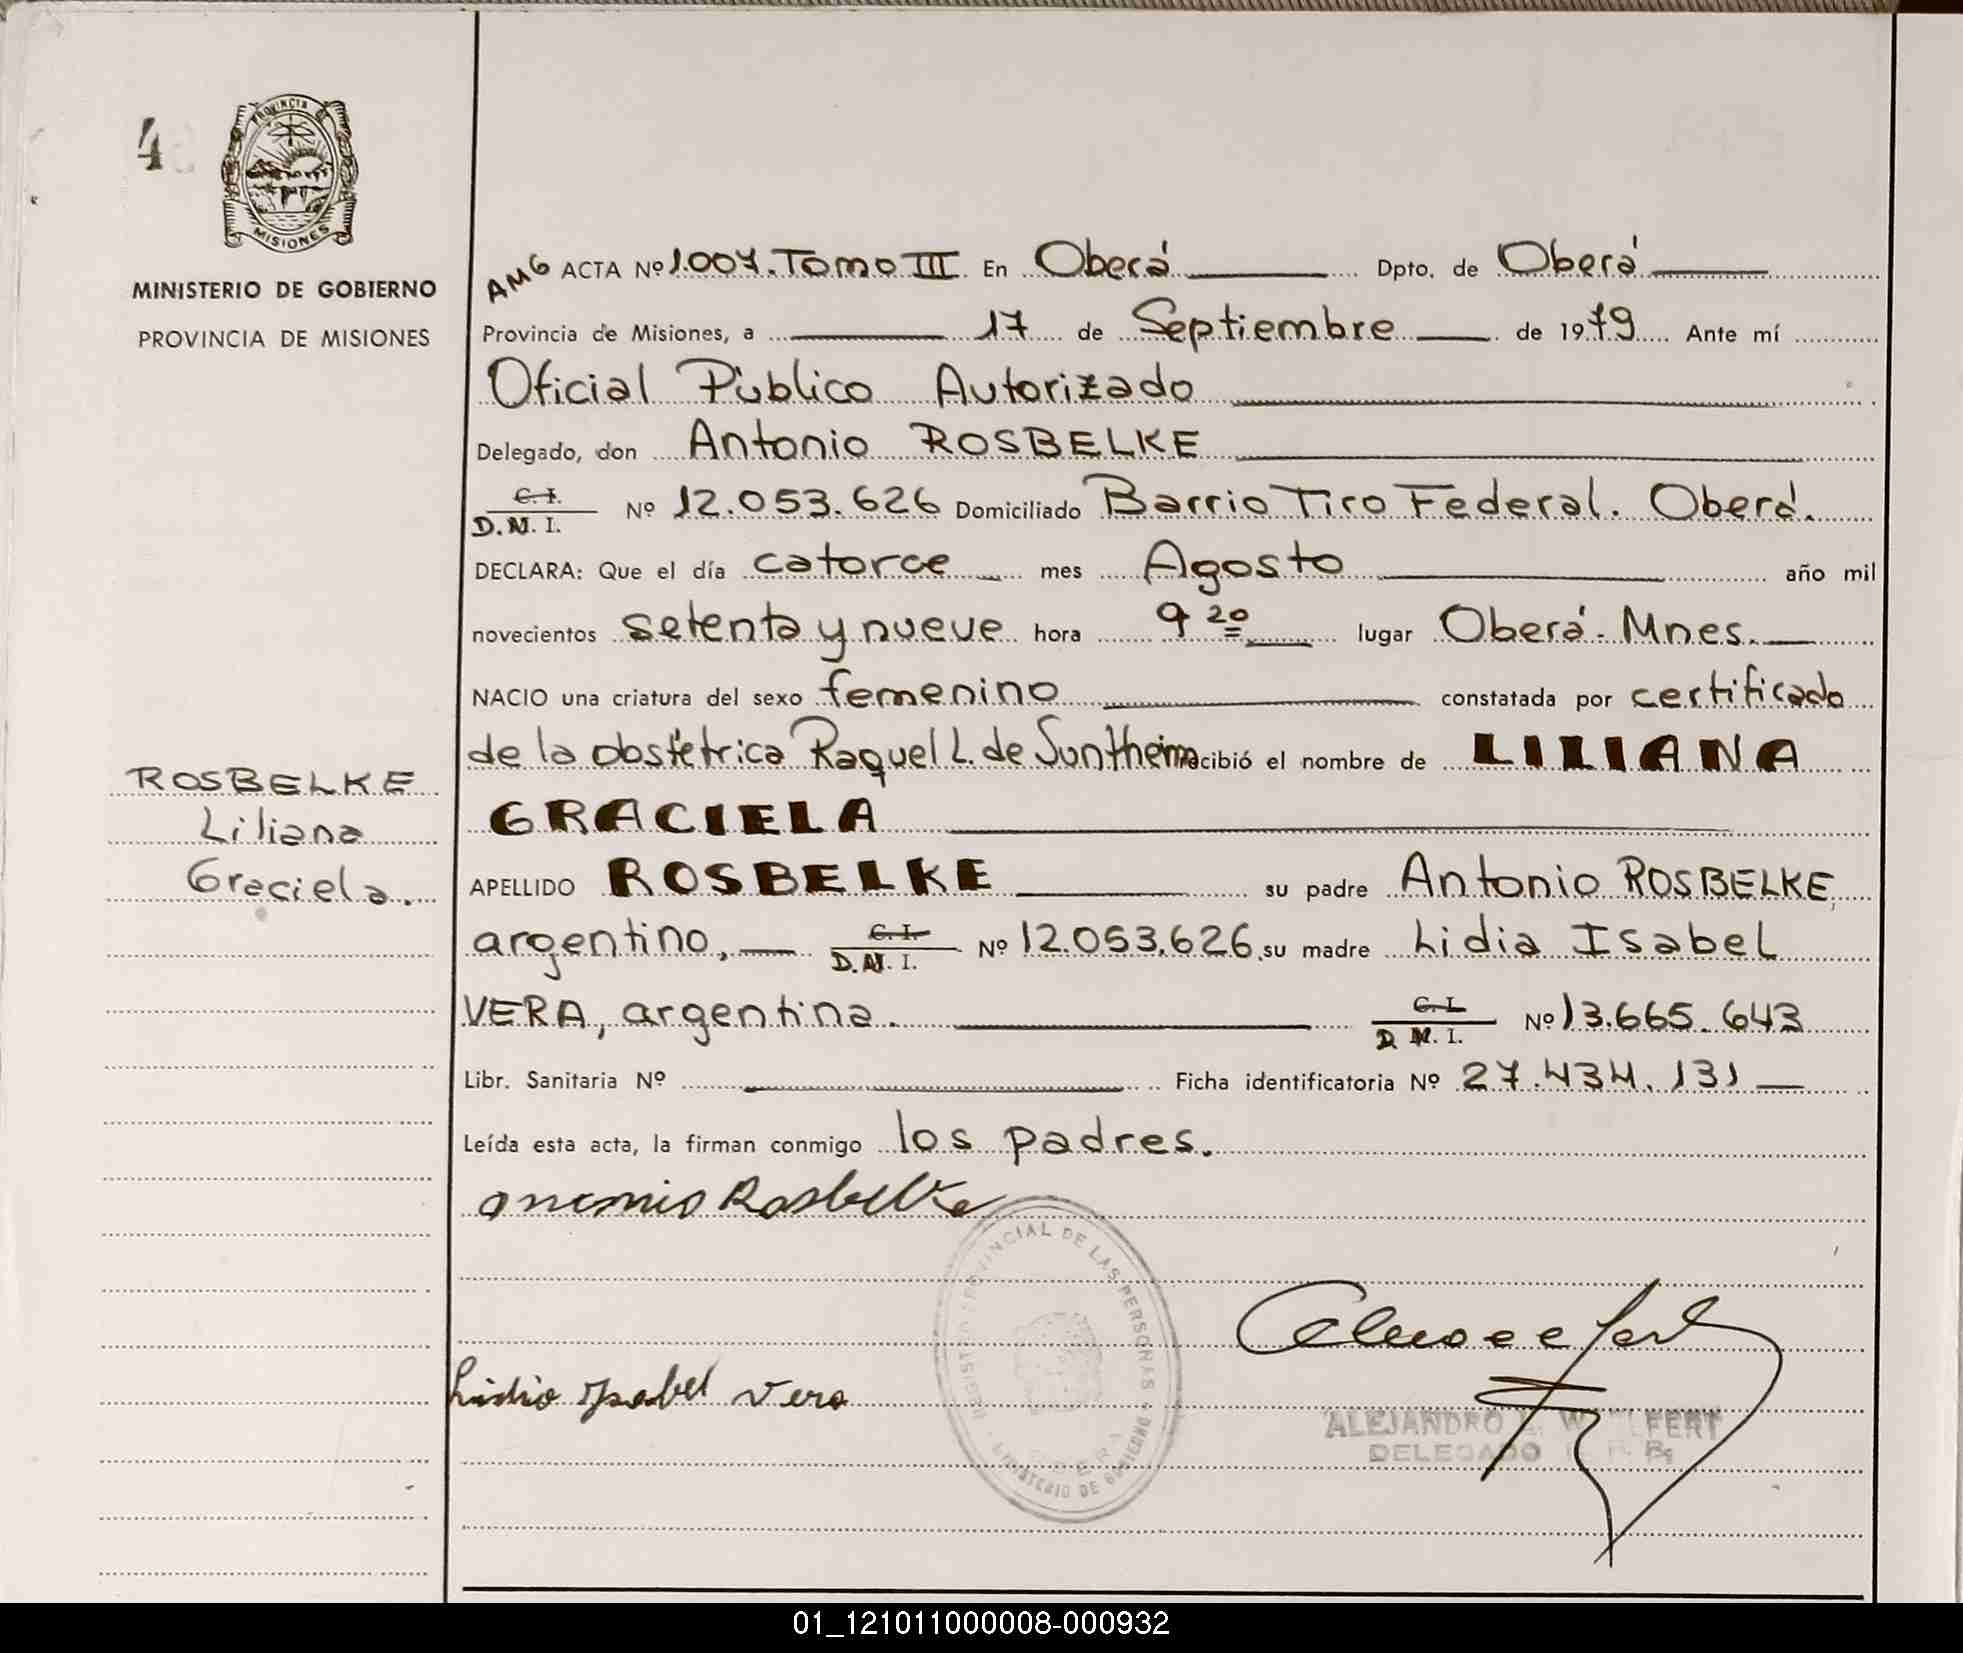 4
PROVINCIA
MISIONES
MINISTERIO DE GOBIERNO
PROVINCIA DE MISIONES
ROSBELKE
Liliana
Graciela.
AMG ACTA Nº 1.007. Tomo III En Oberá Dpto. de Oberá
Provincia de Misiones, a 17 de Septiembre de 1979 Ante mí
Oficial Público Autorizado
Delegado, don Antonio ROSBELKE
C.I. D.N.I. Nº 12.053.626 Domiciliado Barrio Tiro Federal. Oberá.
DECLARA: Que el día catorce mes Agosto año mil
novecientos setenta y nueve hora 9 20 lugar Oberá. Mnes.
NACIO una criatura del sexo femenino constatada por certificado
de la obstétrica Raquel L. de Suntheim recibió el nombre de LILIANA
GRACIELA
APELLIDO ROSBELKE su padre Antonio ROSBELKE,
argentino, C.I. D.N.I. Nº 12.053.626 su madre Lidia Isabel
VERA, argentina. C.I. D.N.I. Nº 13.665.643
Libr. Sanitaria Nº Ficha identificatoria Nº 27.434.131
Leída esta acta, la firman conmigo los padres.
Antonio Rosbelke
REGISTRO PROVINCIAL DE LAS PERSONAS
MINISTERIO DE GOBIERNO
OBERA
Lidia Ysabel Vera
ALEJANDRO
DELEGADO
01_121011000008-000932